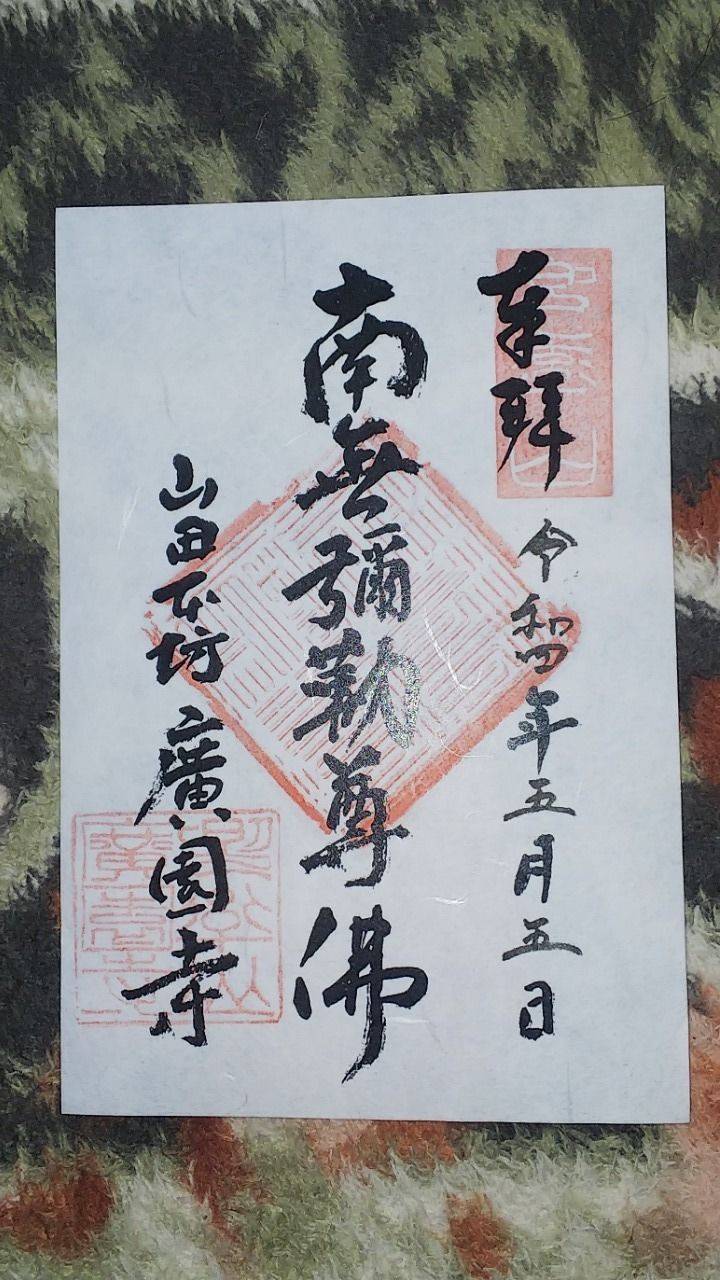 奉拝
令和四年五月五日
南無彌勒尊佛
山田本坊 廣園寺